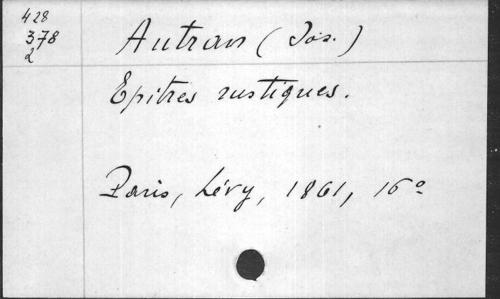 428
378
2
Autran (Jos.)
Epitres rustiques.
Paris, Lévy, 1861, 16º